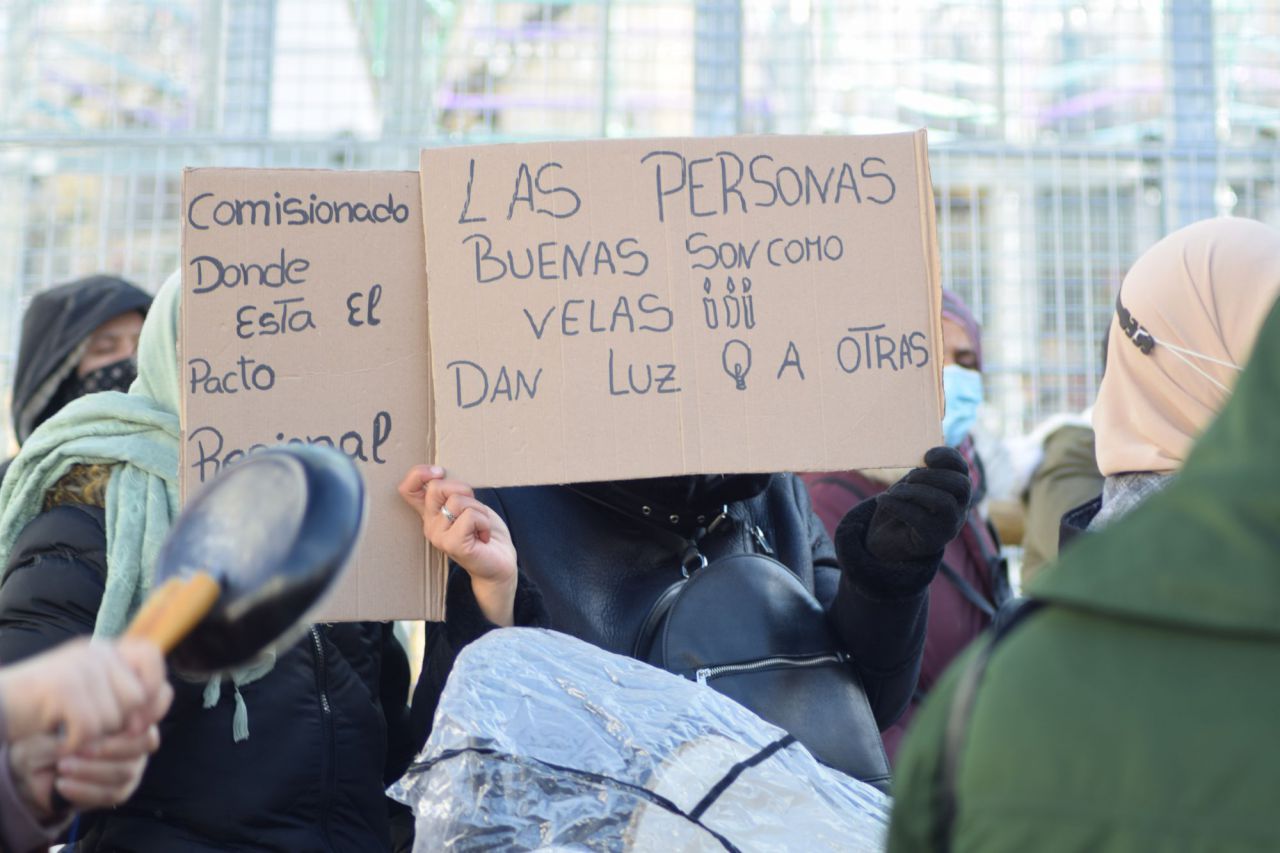 Comisionado
Donde
Esta El
Pacto
Regional
LAS PERSONAS
BUENAS SON COMO
VELAS
DAN LUZ A OTRAS